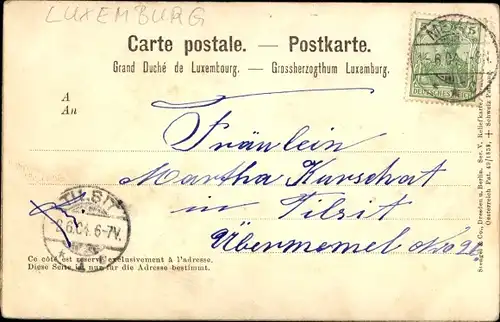 LUXEMBURG
Carte postale. — Postkarte.
Grand Duché de Luxembourg. — Grossherzogthum Luxemburg.
5 5
DEUTSCHES REICH
A
An
Fräulein
Martha Kurschat
in Tilsit
Übermemel No 26
TILSIT
6.04. 6-7V.
Ce côté est reservé exclusivement à l'adresse.
Diese Seite ist nur für die Adresse bestimmt.
Stengel & Co., Dresden u. Berlin. Ser. V. Reliefkarte
Oesterreich Pat. 48/1858. + Schweiz